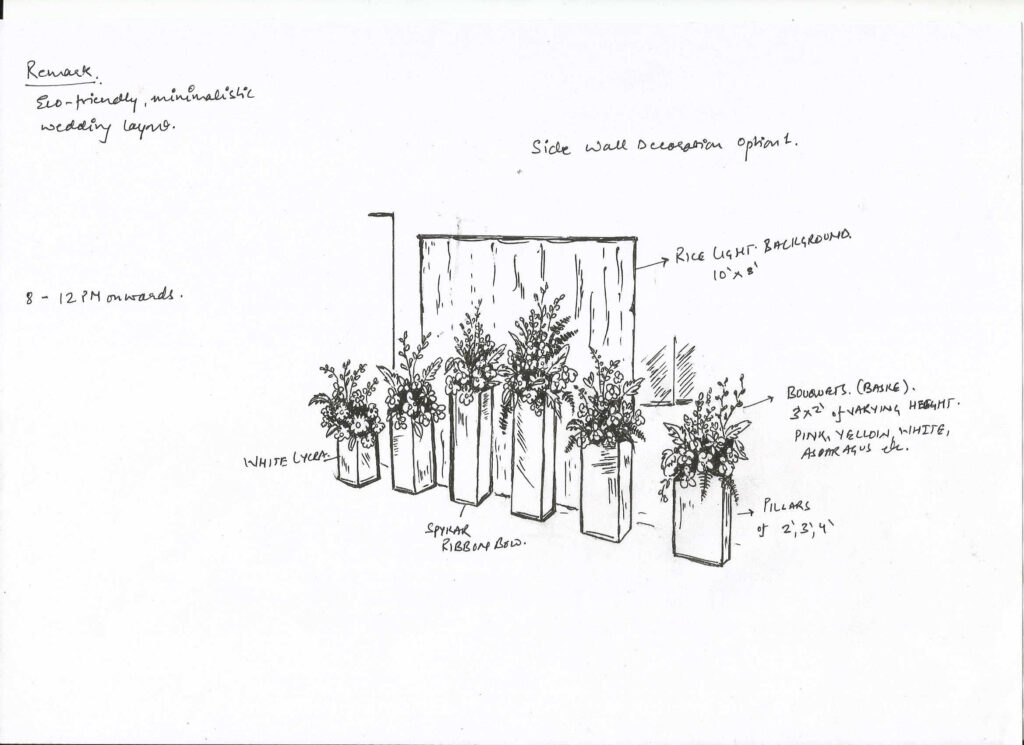 Remark.
Eco-friendly, minimalistic
wedding layout.
Side Wall Decoration Option 1.
RICE LIGHT BACKGROUND.
10' x 8'
8 - 12 PM onwards.
BOUQUETS. (BASKE).
3' x 2' of VARYING HEIGHT.
PINK, YELLOW, WHITE,
ASPARAGUS etc.
WHITE LYCRA.
PILLARS
of 2', 3', 4'
RIBBON BOW.